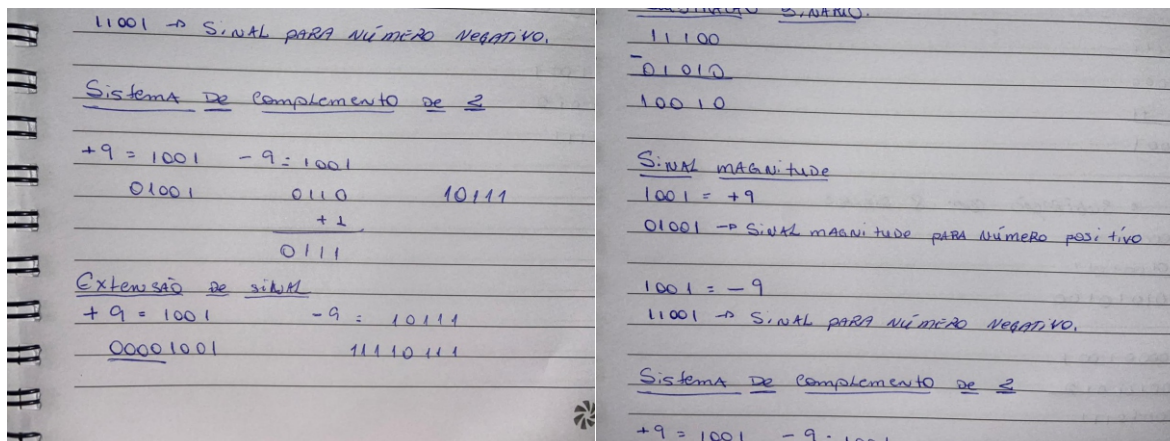 11001 → SINAL PARA NÚMERO NEGATIVO.
Sistema De complemento de 2
+9 = 1001 - 9 = 1001
01001 0110 10111
+1
0111
Extensão de sinal
+ 9 = 1001 - 9 = 10111
00001001 11110111
BINÁRIO.
11100
- 01010
10010
SINAL MAGNITUDE
1001 = +9
01001 → SINAL MAGNITUDE PARA NÚMERO POSITIVO
1001 = - 9
11001 → SINAL PARA NÚMERO NEGATIVO.
Sistema De complemento de 2
+9 = 1001 - 9 = 1001